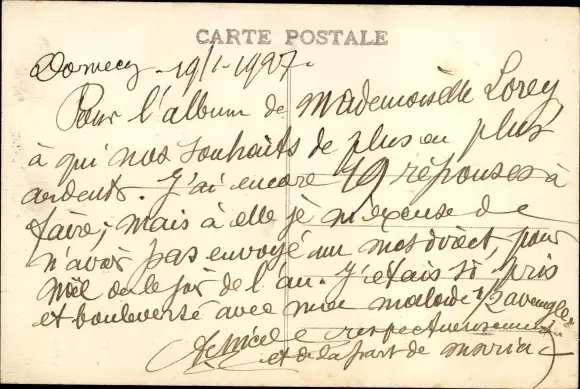 CARTE POSTALE
Domecy - 19/1-1927.
Pour l'album de Mademoiselle Lorey
à qui nos souhaits de plus en plus
ardents. J'ai encore 79 réponses à
faire; mais à elle je m'excuse de
n'avoir pas envoyé un mot direct, pour
Noël ou le jor de l'an. J'étais si pris
et bouleversé avec mon malade 1/2 aveugle
respectueusement
et de la part de Maria